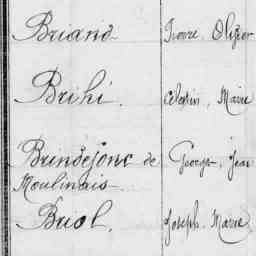 Briand Pierre, Olivier
Brihi. Célestin, Marie
Brindejonc de Georges, Jean
Moulinais
Briol. Joseph, Marie